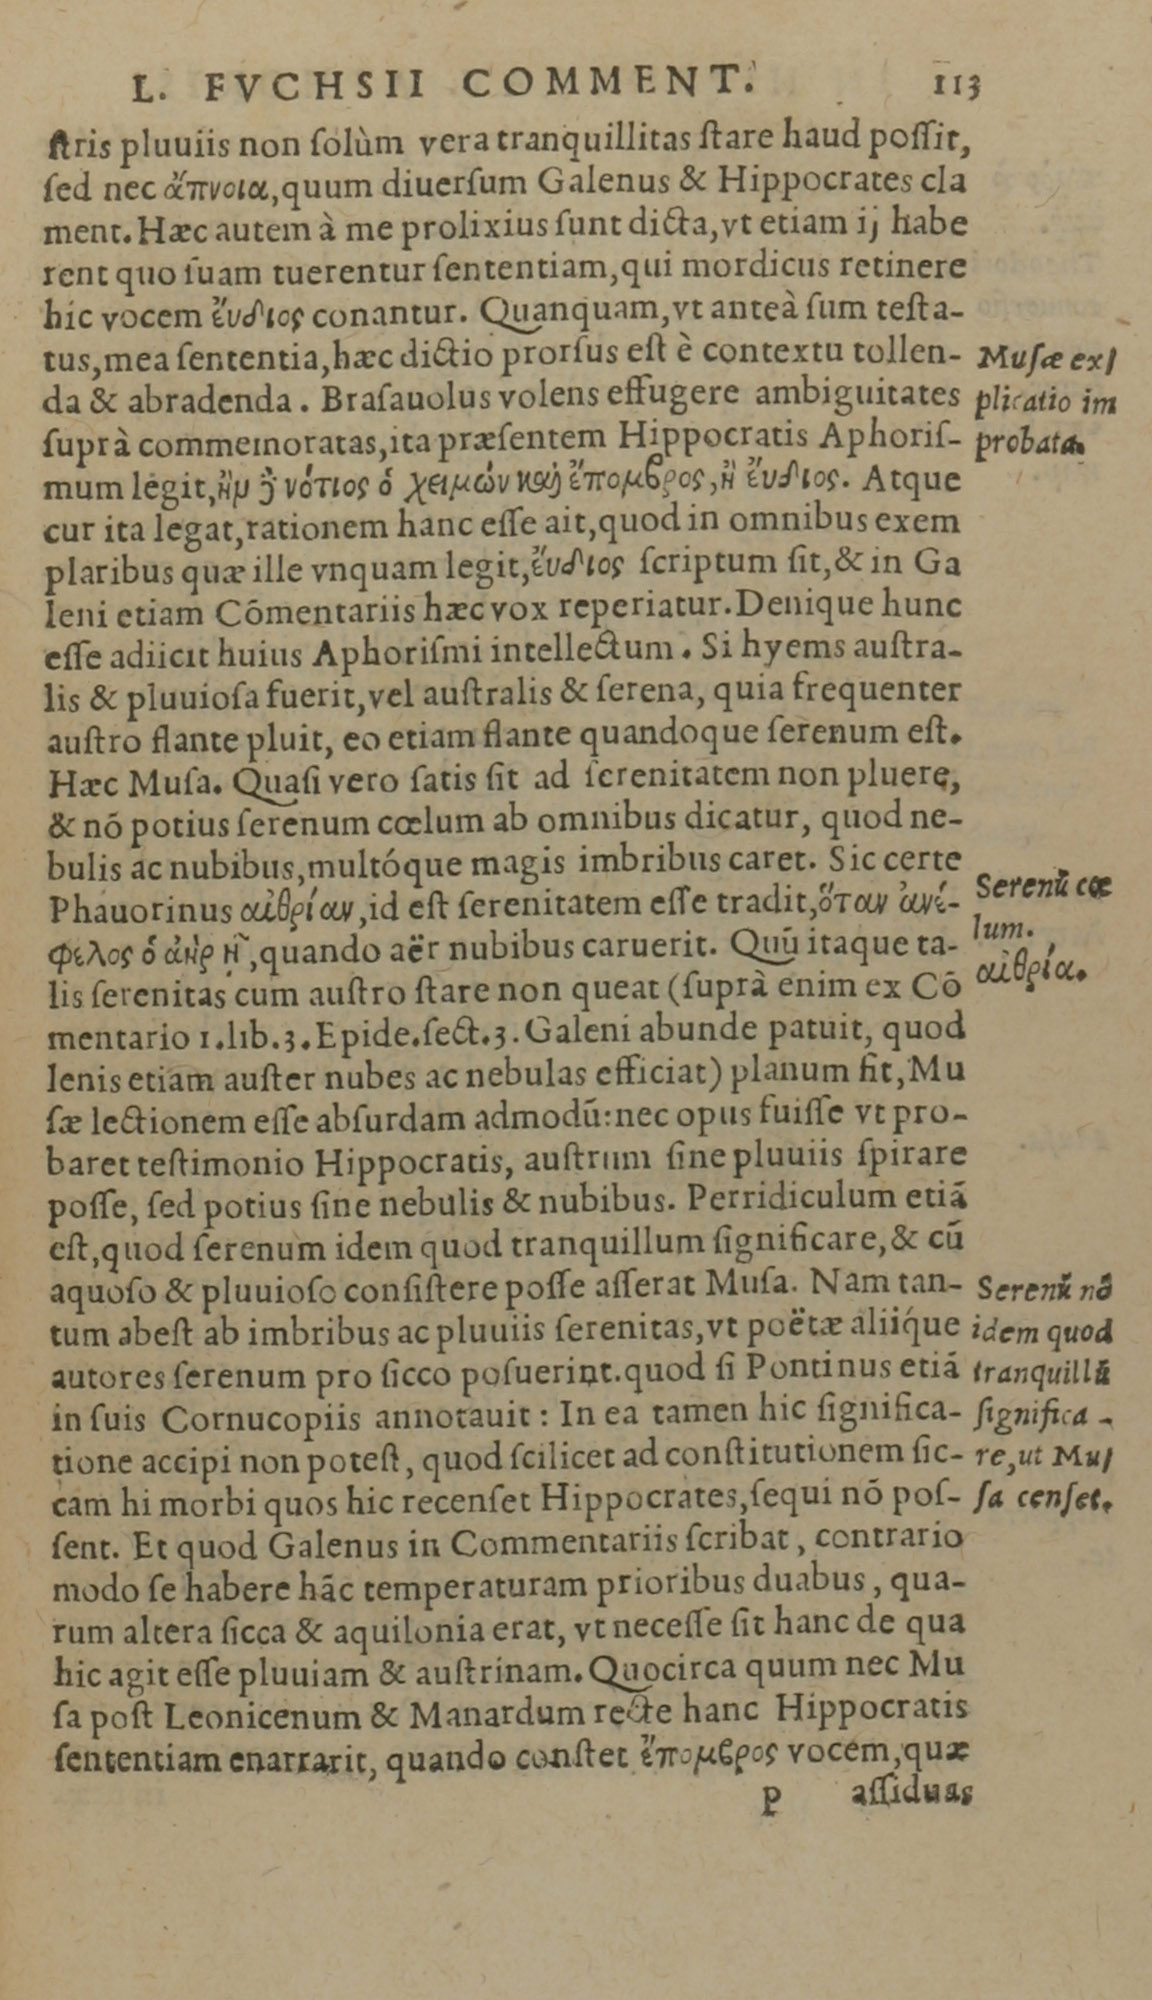 L. FVCHSII COMMENT. 113
ſtris pluuiis non ſolùm vera tranquillitas ſtare haud poſſit,
ſed nec ἄπνοια, quum diuerſum Galenus & Hippocrates cla
ment. Hæc autem à me prolixius ſunt dicta, vt etiam ij habe
rent quo ſuam tuerentur ſententiam, qui mordicus retinere
hic vocem ἔυδιος conantur. Quanquam, vt anteà ſum teſta-
tus, mea ſententia, hæc dictio prorſus eſt è contextu tollen-
da & abradenda. Braſauolus volens effugere ambiguitates
ſuprà commemoratas, ita præſentem Hippocratis Aphoriſ-
mum legit, ἢμ ȝ̀ νότιος ὁ χειμὼν καὶ ἔπομβρος, ἢ ἔυδιος. Atque
cur ita legat, rationem hanc eſſe ait, quod in omnibus exem
plaribus quæ ille vnquam legit, ἔυδιος ſcriptum ſit, & in Ga
leni etiam Cōmentariis hæc vox reperiatur. Denique hunc
eſſe adiicit huius Aphoriſmi intellectum. Si hyems auſtra-
lis & pluuioſa fuerit, vel auſtralis & ſerena, quia frequenter
auſtro flante pluit, eo etiam flante quandoque ſerenum eſt.
Hæc Muſa. Quaſi vero ſatis ſit ad ſerenitatem non pluere,
& nō potius ſerenum cœlum ab omnibus dicatur, quod ne-
bulis ac nubibus, multóque magis imbribus caret. Sic certe
Phauorinus αἰθρίαν, id eſt ſerenitatem eſſe tradit, ὅταν ἀνέ-
φελος ὁ ἀὴρ ᾖ, quando aër nubibus caruerit. Quū itaque ta-
lis ſerenitas cum auſtro ſtare non queat (ſuprà enim ex Cō
mentario 1. lib. 3. Epide. ſect. 3. Galeni abunde patuit, quod
lenis etiam auſter nubes ac nebulas efficiat) planum fit, Mu
ſæ lectionem eſſe abſurdam admodū: nec opus fuiſſe vt pro-
baret teſtimonio Hippocratis, auſtrum ſine pluuiis ſpirare
poſſe, ſed potius ſine nebulis & nubibus. Perridiculum etiā
eſt, quod ſerenum idem quod tranquillum ſignificare, & cū
aquoſo & pluuioſo conſiſtere poſſe aſſerat Muſa. Nam tan-
tum abeſt ab imbribus ac pluuiis ſerenitas, vt poëtæ aliíque
autores ſerenum pro ſicco poſuerint. quod ſi Pontinus etiā
in ſuis Cornucopiis annotauit: In ea tamen hic ſignifica-
tione accipi non poteſt, quod ſcilicet ad conſtitutionem ſic-
cam hi morbi quos hic recenſet Hippocrates, ſequi nō poſ-
ſent. Et quod Galenus in Commentariis ſcribat, contrario
modo ſe habere hāc temperaturam prioribus duabus, qua-
rum altera ſicca & aquilonia erat, vt neceſſe ſit hanc de qua
hic agit eſſe pluuiam & auſtrinam. Quocirca quum nec Mu
ſa poſt Leonicenum & Manardum recte hanc Hippocratis
ſententiam enarrarit, quando conſtet ἔπομβρος vocem, quæ
P aſſiduas
Muſæ ex/
plicatio im
probata.
Serenū cœ
lum.
αἰθρία.
Serenū nō
idem quod
tranquillū
ſignifica-
re, ut Mu/
ſa cenſet.